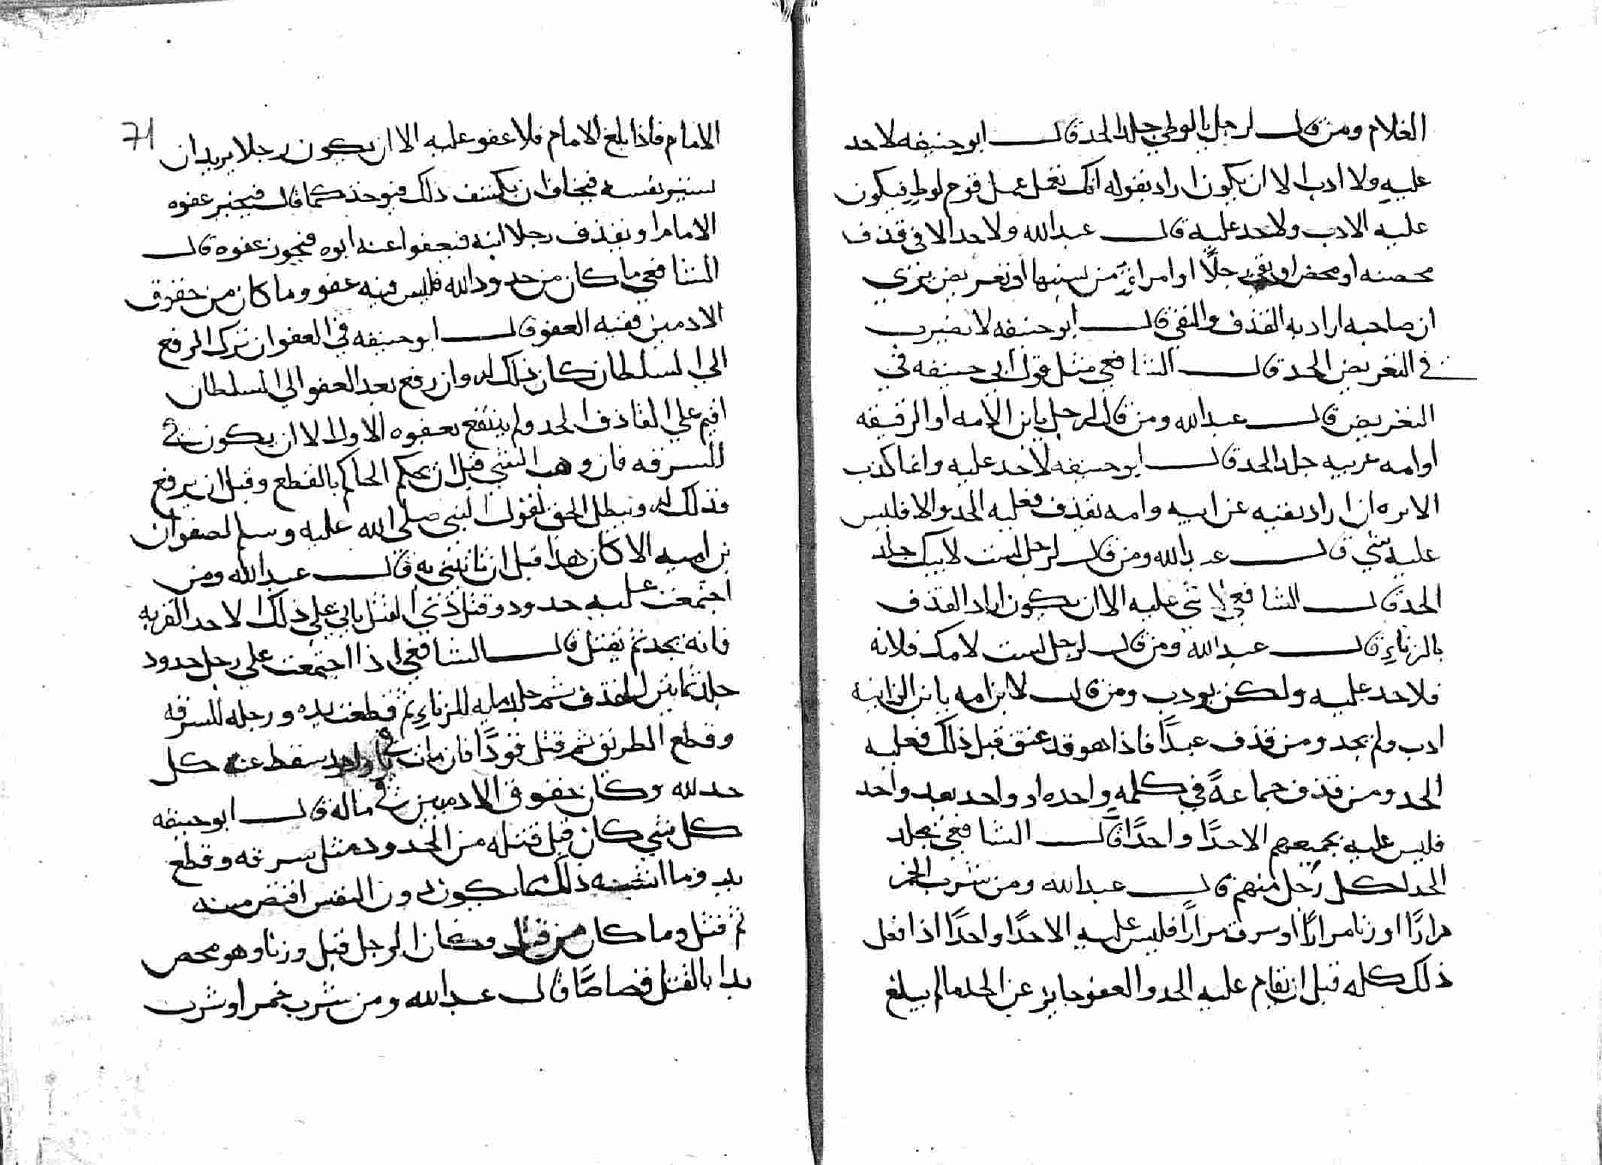 الغلام ومن قال لرجل يا لوطي جلد الحد قال ابو حنيفه لا حد
عليه ولا ادب الا ان يكون اراد بقوله انك تعمل عمل قوم لوط فيكون
عليه الادب ولا حد عليه قال عبد الله ولا حد الا في قذف
محصنه او محصن او نفي رجلا او امراة من نسبها او تعريض يرى
ان صاحبه اراد به القذف والنفي قال ابو حنيفه لا يضرب
في التعريض الحد قال الشافعي مثل قول ابي حنيفه في
التعريض قال عبد الله ومن قال لرجل يا بن الامه او الرقيقه
او امه عربيه جلد الحد قال ابو حنيفه لا حد عليه وانما كذب
الا يره ان اراد نفيه عن ابيه وامه بقذف فعليه الحد والا فليس
عليه شي قال عبد الله ومن قال لرجل لست لابيك جلد
الحد قال الشافعي لا شي عليه الا ان يكون اراد القذف
بالزناء قال عبد الله ومن قال لرجل لست لامك فلانه
فلا حد عليه ولكن يودب ومن قال لابن امه يا بن الزانيه
ادب ولم يحد ومن قذف عبدا فاذا هو قد عتق قبل ذلك فعليه
الحد ومن قذف جماعة في كلمه واحده او واحد بعد واحد
فليس عليه بجميعهم الا حدا واحدا قال الشافعي يجلد
الحد لكل رجل منهم قال عبد الله ومن شرب الخمر
مرارا او زنا مرارا او سرق مرارا فليس عليه الا حدا واحدا اذا فعل
ذلك كله قبل ان يقام عليه الحد والعفو جايز عن الحد ما لم يبلغ
71
الامام فاذا بلغ الامام فلا عفو عليه الا ان يكون رجلا يريد ان
يستر نفسه فيخاف ان يكشف ذلك فيوخذ كما قال فيجيز عفوه
الامام او يقذف رجلا ابنه فيعفوا عنه ابوه فيجوز عفوه قال
الشافعي ما كان من حدود الله فليس فيه عفو وما كان من حقوق
الادميين ففيه العفو قال ابو حنيفه في العفو ان ترك الرفع
الى السلطان كان ذلك له وان رفع بعد العفو الي السلطان
اقيم علي القاذف الحد ولم ينتفع بعفوه الاول الا ان يكون في
السرقه فان وهب الشي قبل ان يحكم الحاكم بالقطع وقبل ان يرفع
فذلك له ويبطل الحق لقول النبي صلى الله عليه وسلم لصفوان
بن اميه الا كان هذا قبل ان تاتيني به قال عبد الله ومن
اجتمعت عليه حدود وقتل فالقتل ياتي علي ذلك الا حد الفريه
فانه يحد ثم يقتل قال الشافعي اذا اجتمعت علي رجل حدود
جلد ثمانين للقذف ثم جلد مايه للزناء ثم قطعت يده ورجله للسرقه
وقطع الطريق ثم قتل قودا فان مات في واحد سقط عنه كل
حد لله وكان حقوق الادميين في ماله قال ابو حنيفه
كل شي كان قبل قتله من الحدود مثل سرقه وقطع
يد وما اشبه ذلك مما يكون دون النفس اقتص منه
ثم قتل وما كان من قتل وكان الرجل قتل وزنا وهو محصن
بدا بالقتل قصاصا قال عبد الله ومن شرب خمرا وشرب